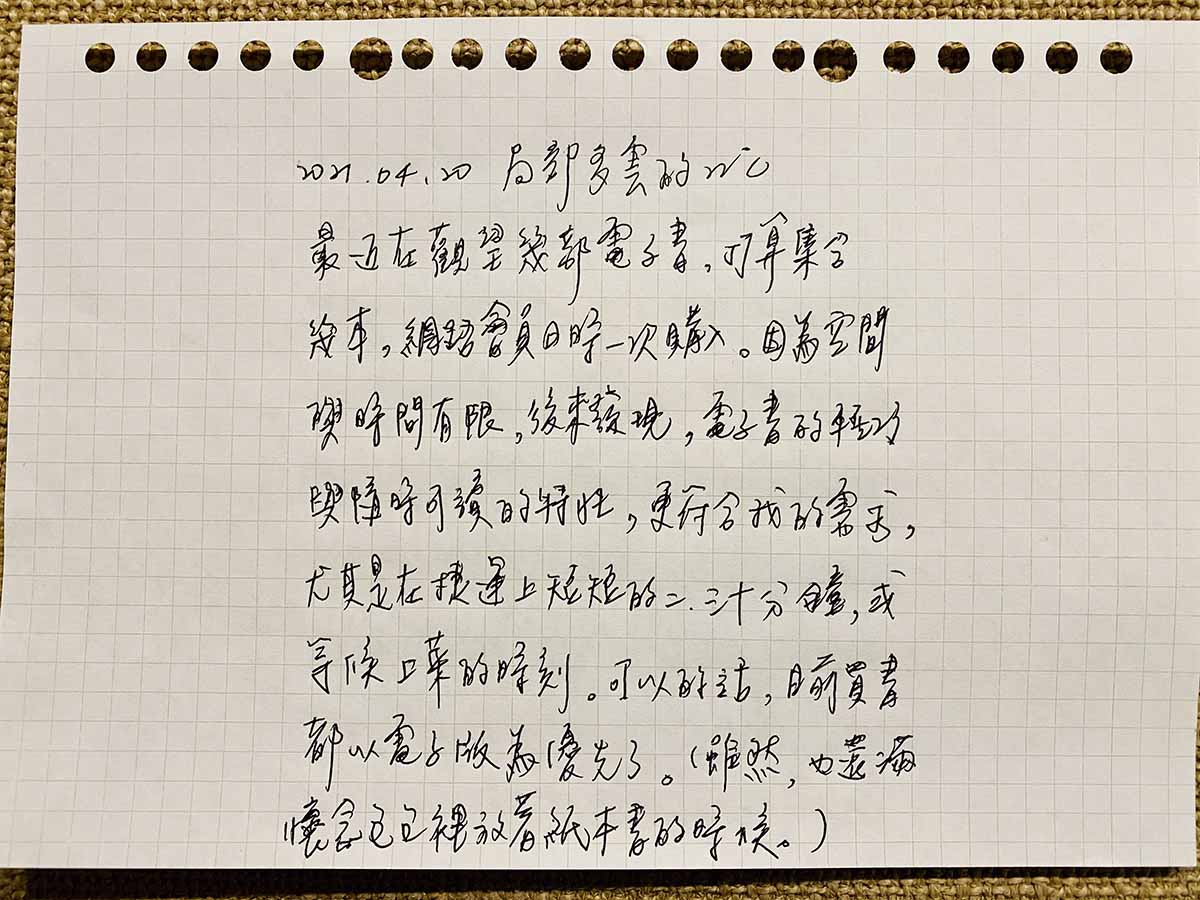 2021.04.20 局部多雲的22℃
最近在觀望幾部電子書,打算集合
幾本,網路會員日時一次購入。因為空間
與時間有限,後來發現,電子書的輕巧
與隨時可讀的特性,更符合我的需求,
尤其是在捷運上短短的二、三十分鐘,或
等候上菜的時刻。可以的話,目前買書
都以電子版為優先了。(雖然,也還滿
懷念包包裡放著紙本書的時候。)